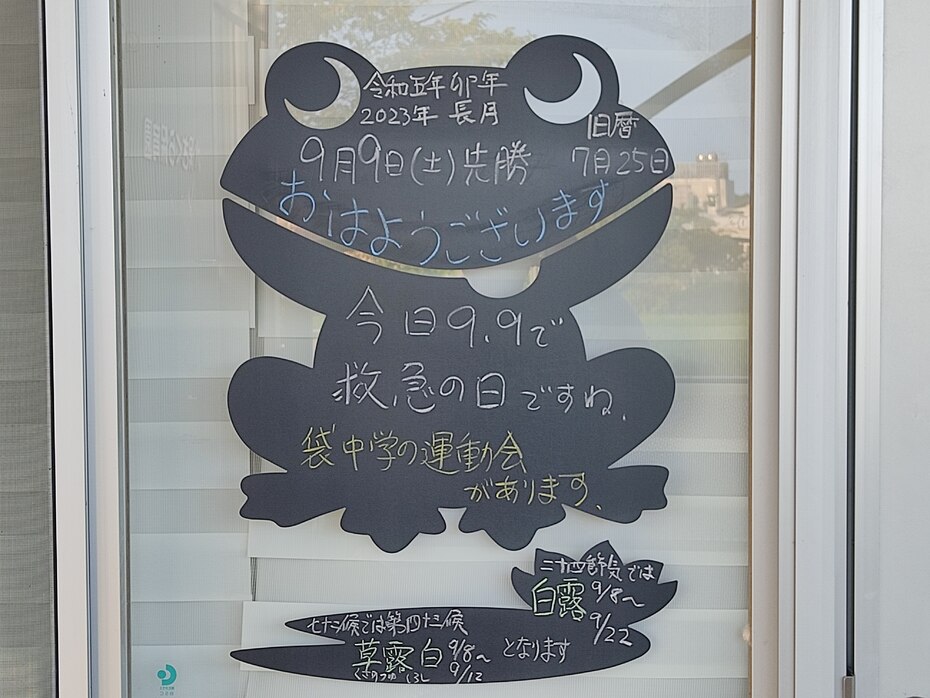 令和五年 卯年
2023年 長月
旧暦
7月25日
9月9日(土)先勝
おはようございます
今日9.9で
救急の日ですね、
袋中学の運動会
があります、
二十四節気では
白露 9/8〜
9/22
七十二候では第四十三候
草露白 9/8〜
9/12
くさのつゆしろし
となります